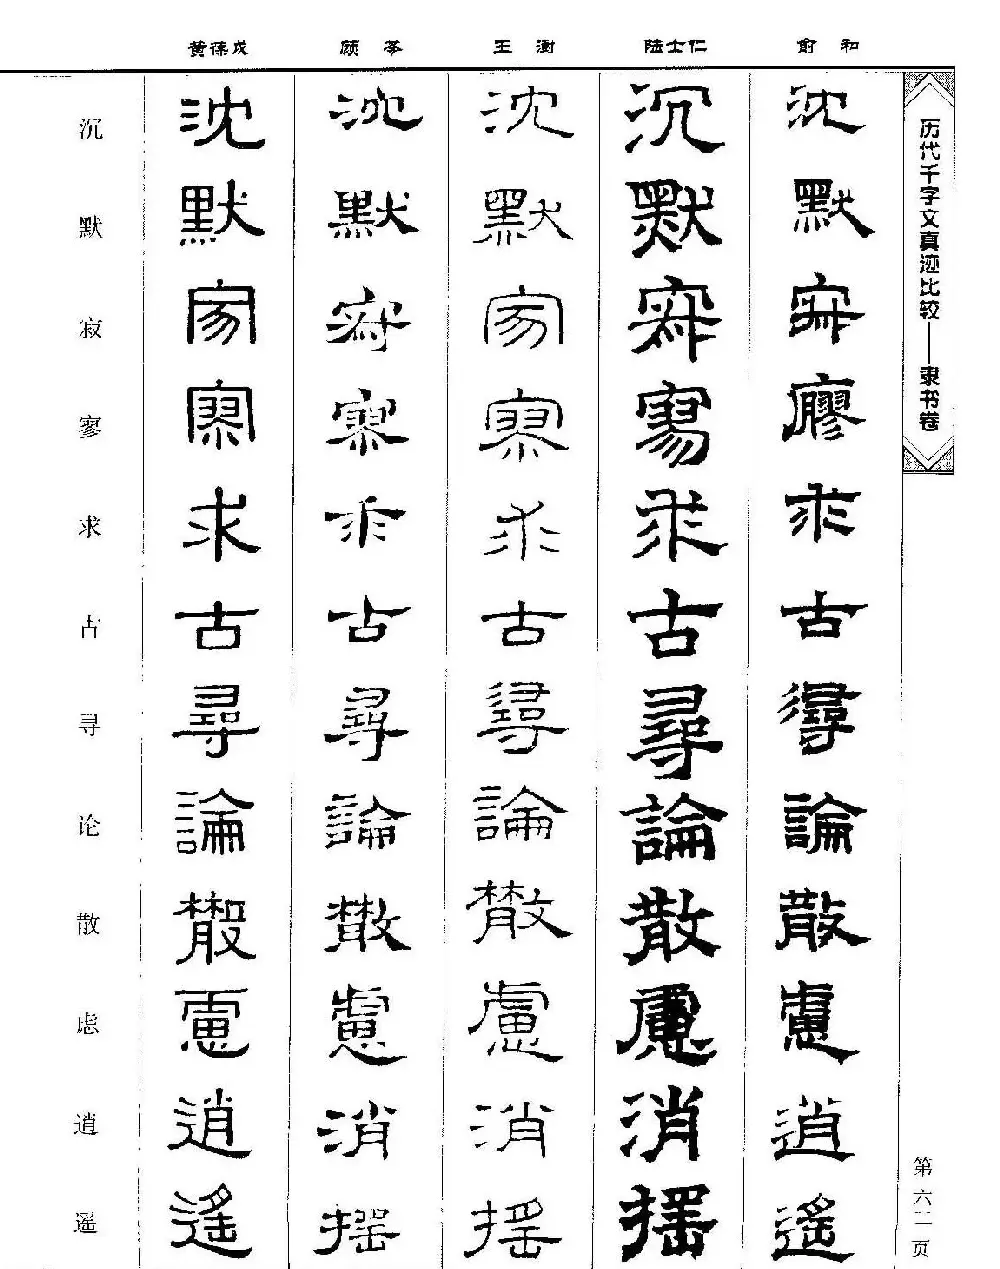 黄葆戉 顾苓 王澍 陆士仁 俞和
历代千字文真迹比较——隶书卷
沉 沈 沈 沈 沉 沈
默 默 默 默 默 默
寂 寂 寂 寂 寂 寂
寥 寥 寥 寥 寥 廖
求 求 求 求 求 求
古 古 古 古 古 古
寻 尋 尋 尋 尋 尋
论 論 論 論 論 論
散 散 散 散 散 散
虑 慮 慮 慮 慮 慮
逍 逍 消 消 消 逍
遥 遙 摇 摇 摇 遙
第六二页